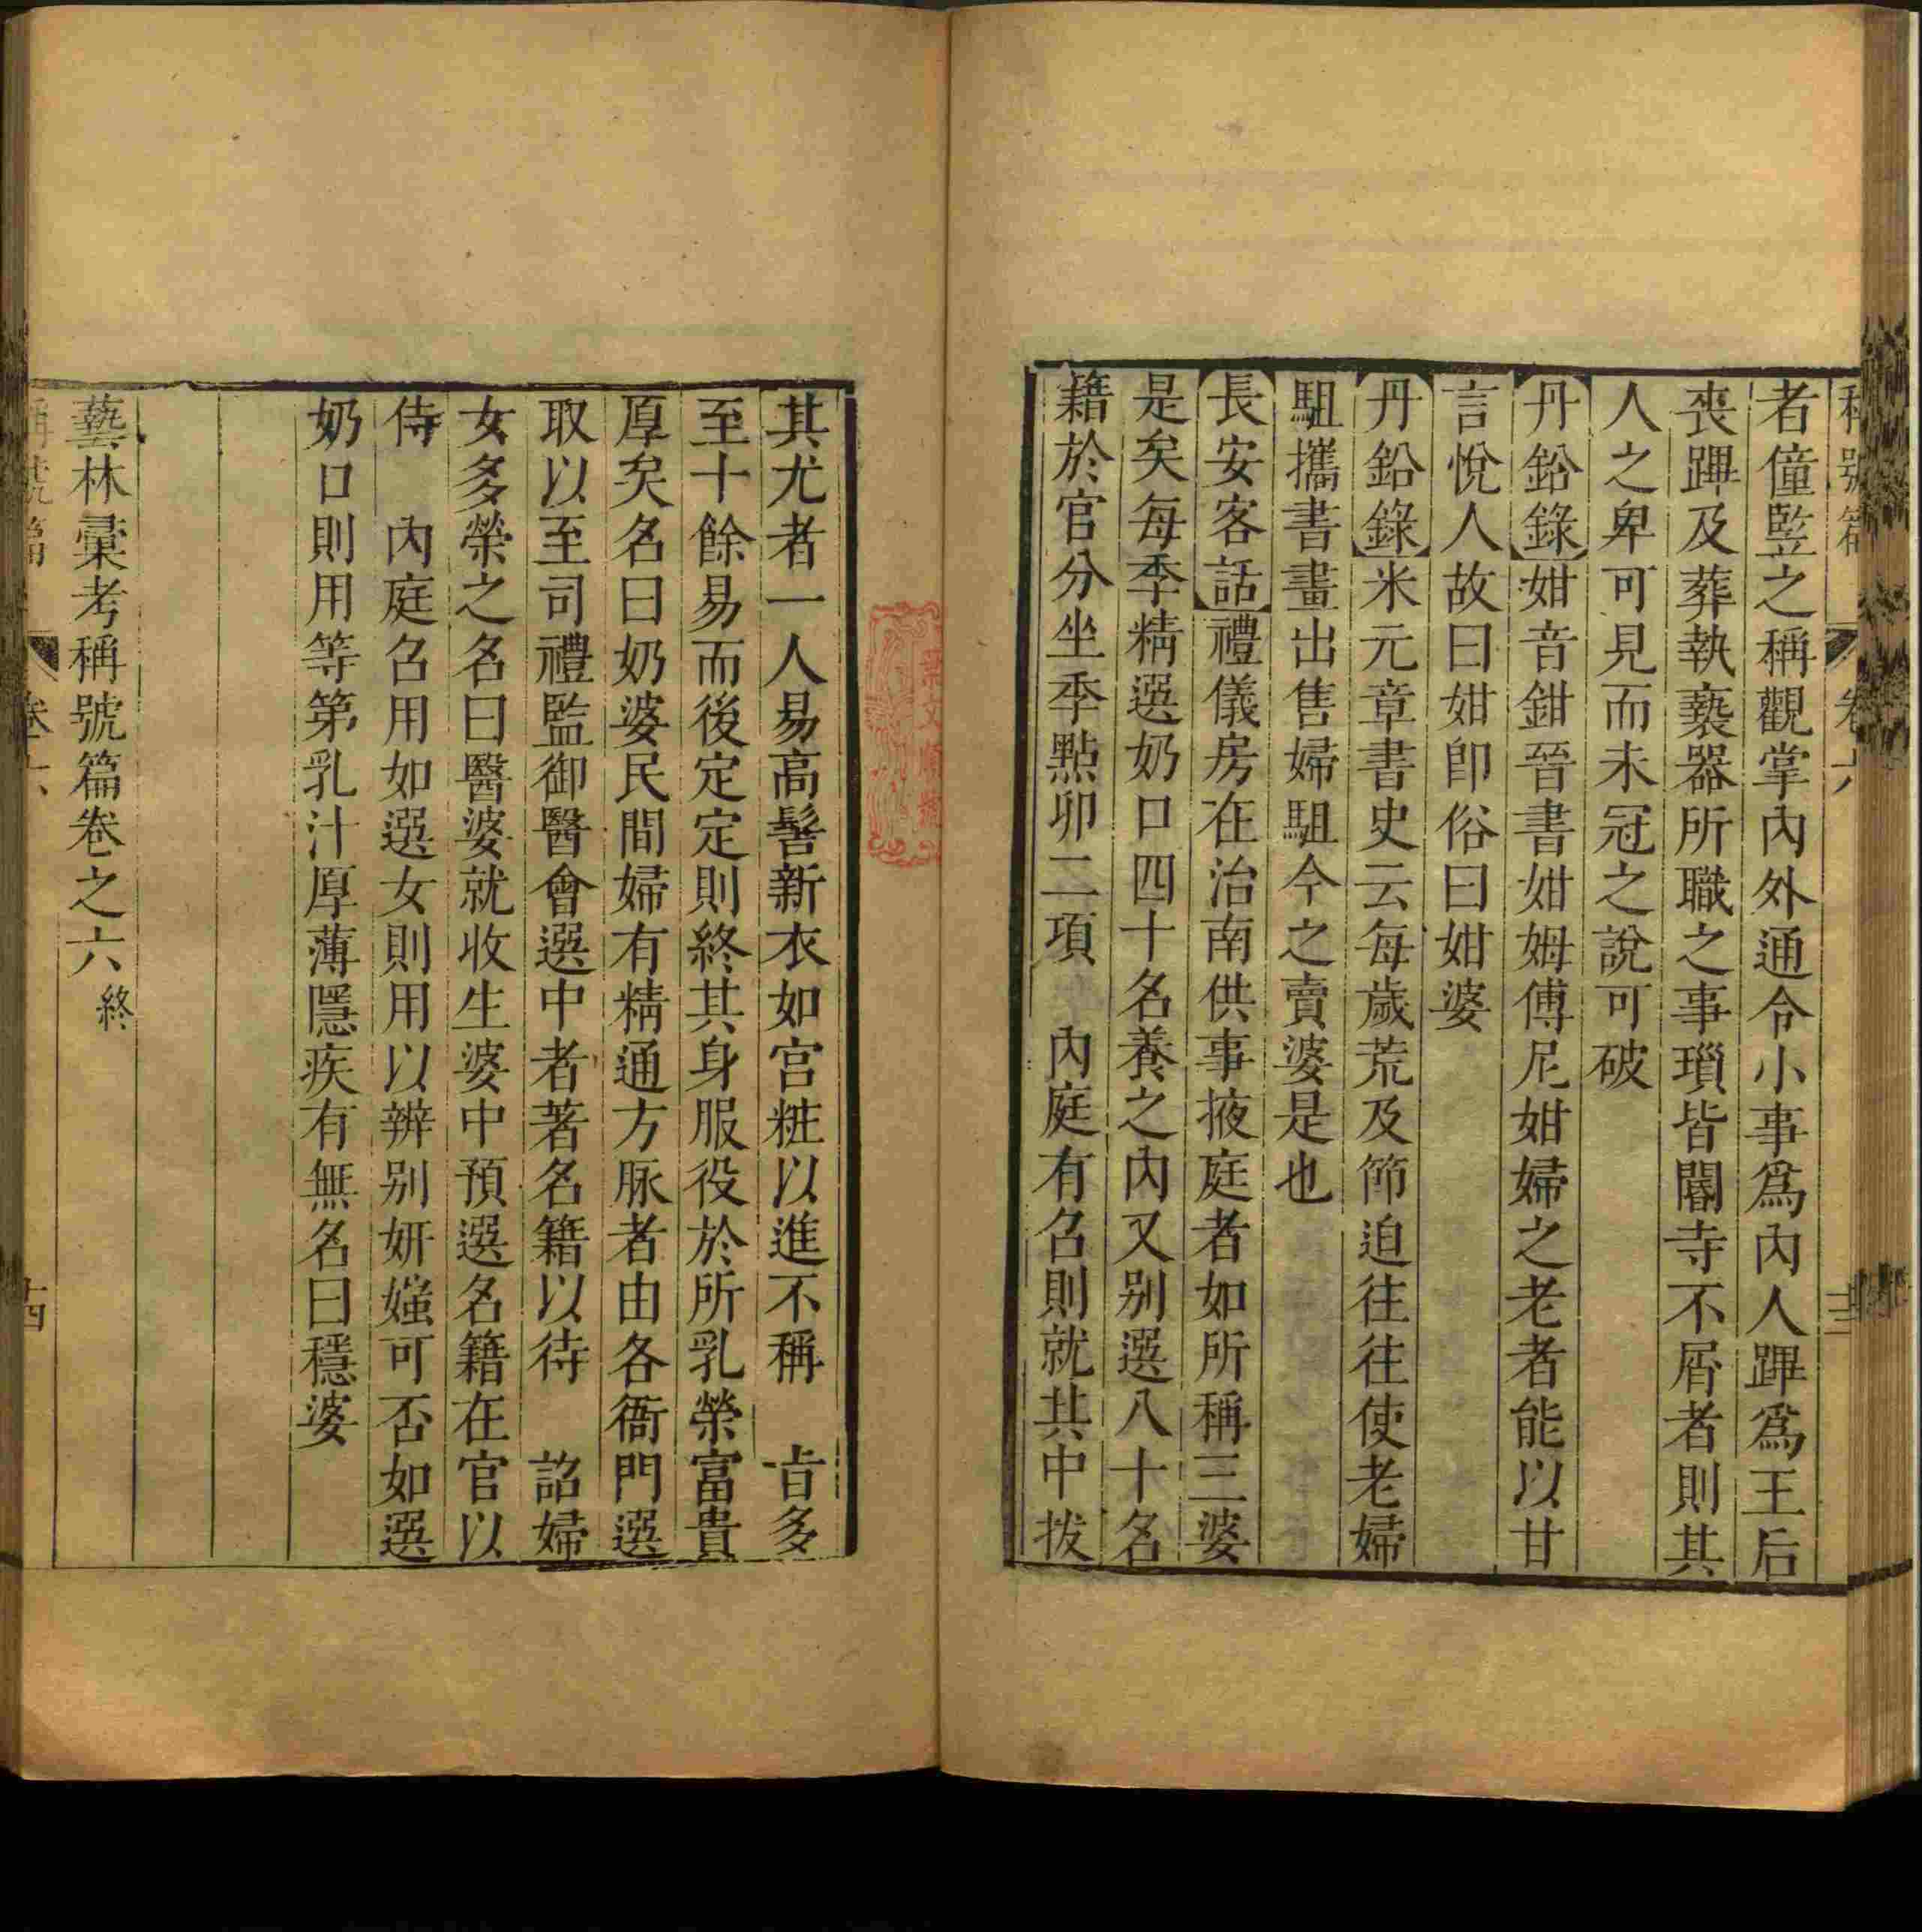 稱號篇 卷六 十三
者僮豎之稱觀掌內外通令小事爲內人蹕爲王后
喪蹕及葬執䙝器所職之事瑣皆閽寺不屑者則其
人之卑可見而未冠之說可破
丹鉛錄姏音鉗晉書姏姆傅尼姏婦之老者能以甘
言悅人故曰姏卽俗曰姏婆
丹鉛錄米元章書史云每歲荒及節迫往往使老婦
駔攜書畫出售婦駔今之賣婆是也
長安客話禮儀房在治南供事掖庭者如所稱三婆
是矣每季精選奶口四十名養之內又别選八十名
籍於官分坐季點卯二項 內庭有召則就其中拔
其尤者一人易高髻新衣如宫粧以進不稱 㫖多
至十餘易而後定定則終其身服役於所乳榮富貴
厚矣名曰奶婆民間婦有精通方脉者由各衙門選
取以至司禮監御醫會選中者著名籍以待 詔婦
女多榮之名曰醫婆就收生婆中預選名籍在官以
侍 內庭召用如選女則用以辨别妍媸可否如選
奶口則用等第乳汁厚薄隱疾有無名曰穩婆
藝林彙考稱號篇卷之六終
稱號篇 卷六 十四